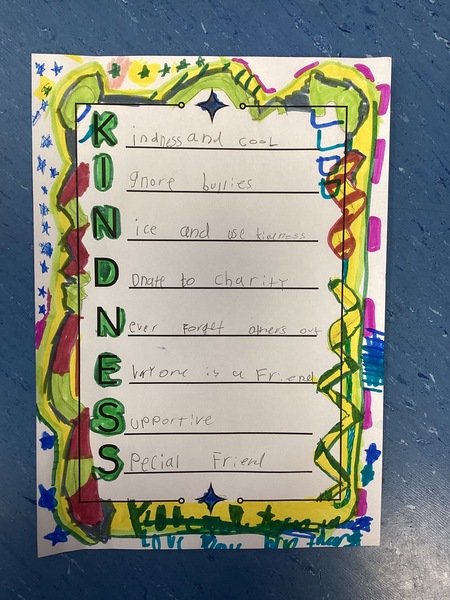 Kindness and cool
Ignore bullies
Nice and use kindness
Donate to charity
Never forget others out
Everyone is a Friend
Supportive
Special Friend
Love